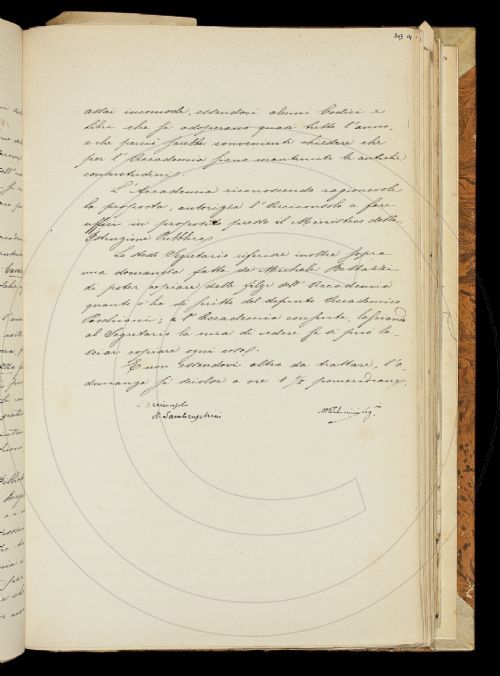 assai incomode, essendoci alcuni Codici e
libri che si adoperano quasi tutto l'anno,
e che perciò sarebbe conveniente chiedere che
per l'Accademia siano mantenute le antiche
consuetudini.
L'Accademia riconoscendo ragionevole
la proposta, autorizza l'Arciconsolo a fare
uffici in proposito presso il Ministero della
Istruzione Pubblica.
Lo stesso Segretario riferisce inoltre sopra
una domanda fatta da Michele
di poter copiare dalle filze dell'Accademia
quanto v'ha di scritto del defunto Accademico
; e l'Accademia consente lasciando
al Segretario la cura di vedere se si può la-
sciar copiare ogni cosa.
E non essendovi altro da trattare, l'a-
dunanza si sciolse a ore 1 ½ pomeridiane.